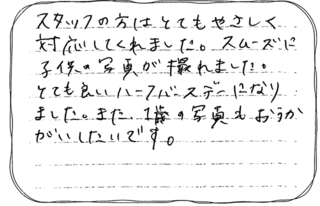 スタッフの方はとてもやさしく
対応してくれました。スムーズに
子供の写真が撮れました。
とても良いハーフバースデーになり
ました。また、1歳の写真もおうか
がいしたいです。